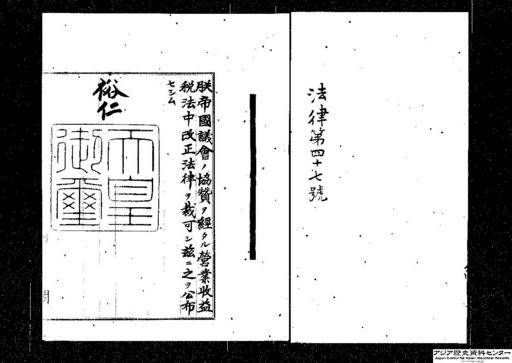 法律第四十七號
朕帝國議會ノ協贊ヲ經タル營業收益
税法中改正法律ヲ裁可シ茲ニ之ヲ公布
セシム
裕仁
天皇
御璽
アジア歴史資料センター
Japan Center for Asian Historical Records